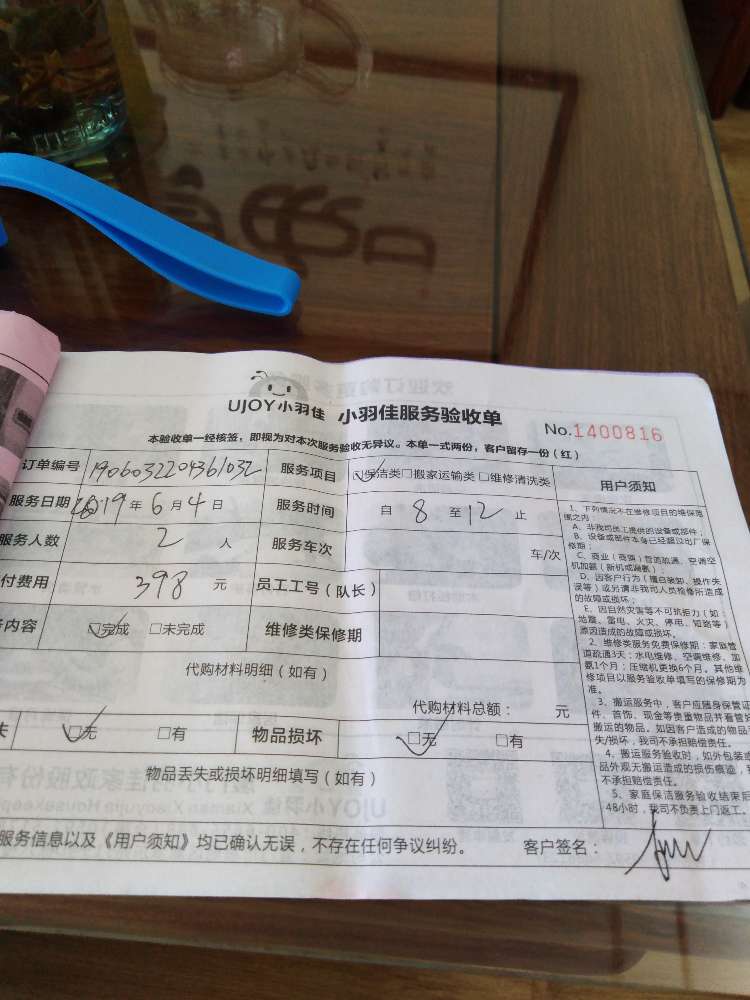 UJOY小羽佳 小羽佳服务验收单 No.1400816
本验收单一经核签，即视为对本次服务验收无异议。本单一式两份，客户留存一份（红）
订单编号 1906032204361032 服务项目 保洁类 搬家运输类 维修清洗类 用户须知
服务日期 2019年6月4日 服务时间 自8至12止
服务人数 2人 服务车次 车/次
付费用 398元 员工工号（队长）
内容 完成 未完成 维修类保修期
代购材料明细（如有）
代购材料总额： 元
失 无 有 物品损坏 无 有
物品丢失或损坏明细填写（如有）
服务信息以及《用户须知》均已确认无误，不存在任何争议纠纷。 客户签名：
1、下列情况不在维修项目的维保范
围之内
A、非我司员工提供的设备或部件；
B、设备或部件本身已经超过出厂保
修期；
C、商业（商铺）管道疏通、空调空
机加氨（新机或漏氨）
D、因客户行为（擅自装卸、操作失
误等）或另请非我司人员检修所造成
的故障或损坏；
E、因自然灾害等不可抗力（如：
地震、雷电、火灾、停电、短路等）
原因造成的故障或损坏。
2、维修类服务免费保修期：家庭管
道疏通3天；水电维修、空调维修、加
氨1个月；压缩机更换6个月。其他维
修项目以服务验收单填写的保修期为
准。
3、搬运服务中，客户应随身保管证
件、首饰、现金等贵重物品并看管好
搬运的物品。如因客户造成的物品丢
失/损坏，我司不承担赔偿责任。
4、搬运服务验收时，如外包装或
品外观无搬运造成的损伤痕迹，我
不承担赔偿责任。
5、家庭保洁服务验收结束后
48小时，我司不负责上门返工。